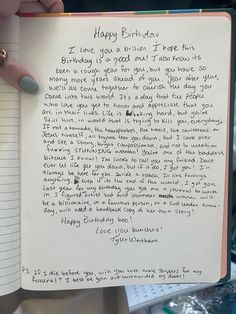 Happy Birthday
I love you a billion. I hope this
Birthday is a good one! I also know its
been a rough year for you, but you have so
many more years ahead of you. Year after year,
we'll all come together to cherish the day you
came into this world. It's a day that the people
who love you get to honor and appreciate that you
are in their lives. Life is fucking hard, but you're
still here, in world that is trying to kill you everyday,
If not a tornado, the
Jesus himself; all
and see a strong, bright, compassionate, and not to mention
fucking STUNNING woman! You're one of the baddest
bitches I know! Im lucky to call you my friend. Dont
ever let life get you down, but if it does I got you! I'm
Always be here for you. Like a roach. Ill live through
anything, even if its the end of the world. I got you
last year for my birthday you got me a journal to write
in. I figured artist and avid journalist whom will
be a billionaire, or a famous person, or a cult leader some-
day, will need a handbook copy of her own story!
Happy Birthday hoe!
Love you bunches!
Tyler
P.S. If I die before you, will you hire male strippers for my
funeral? I best be goin out surrounded by dicks!